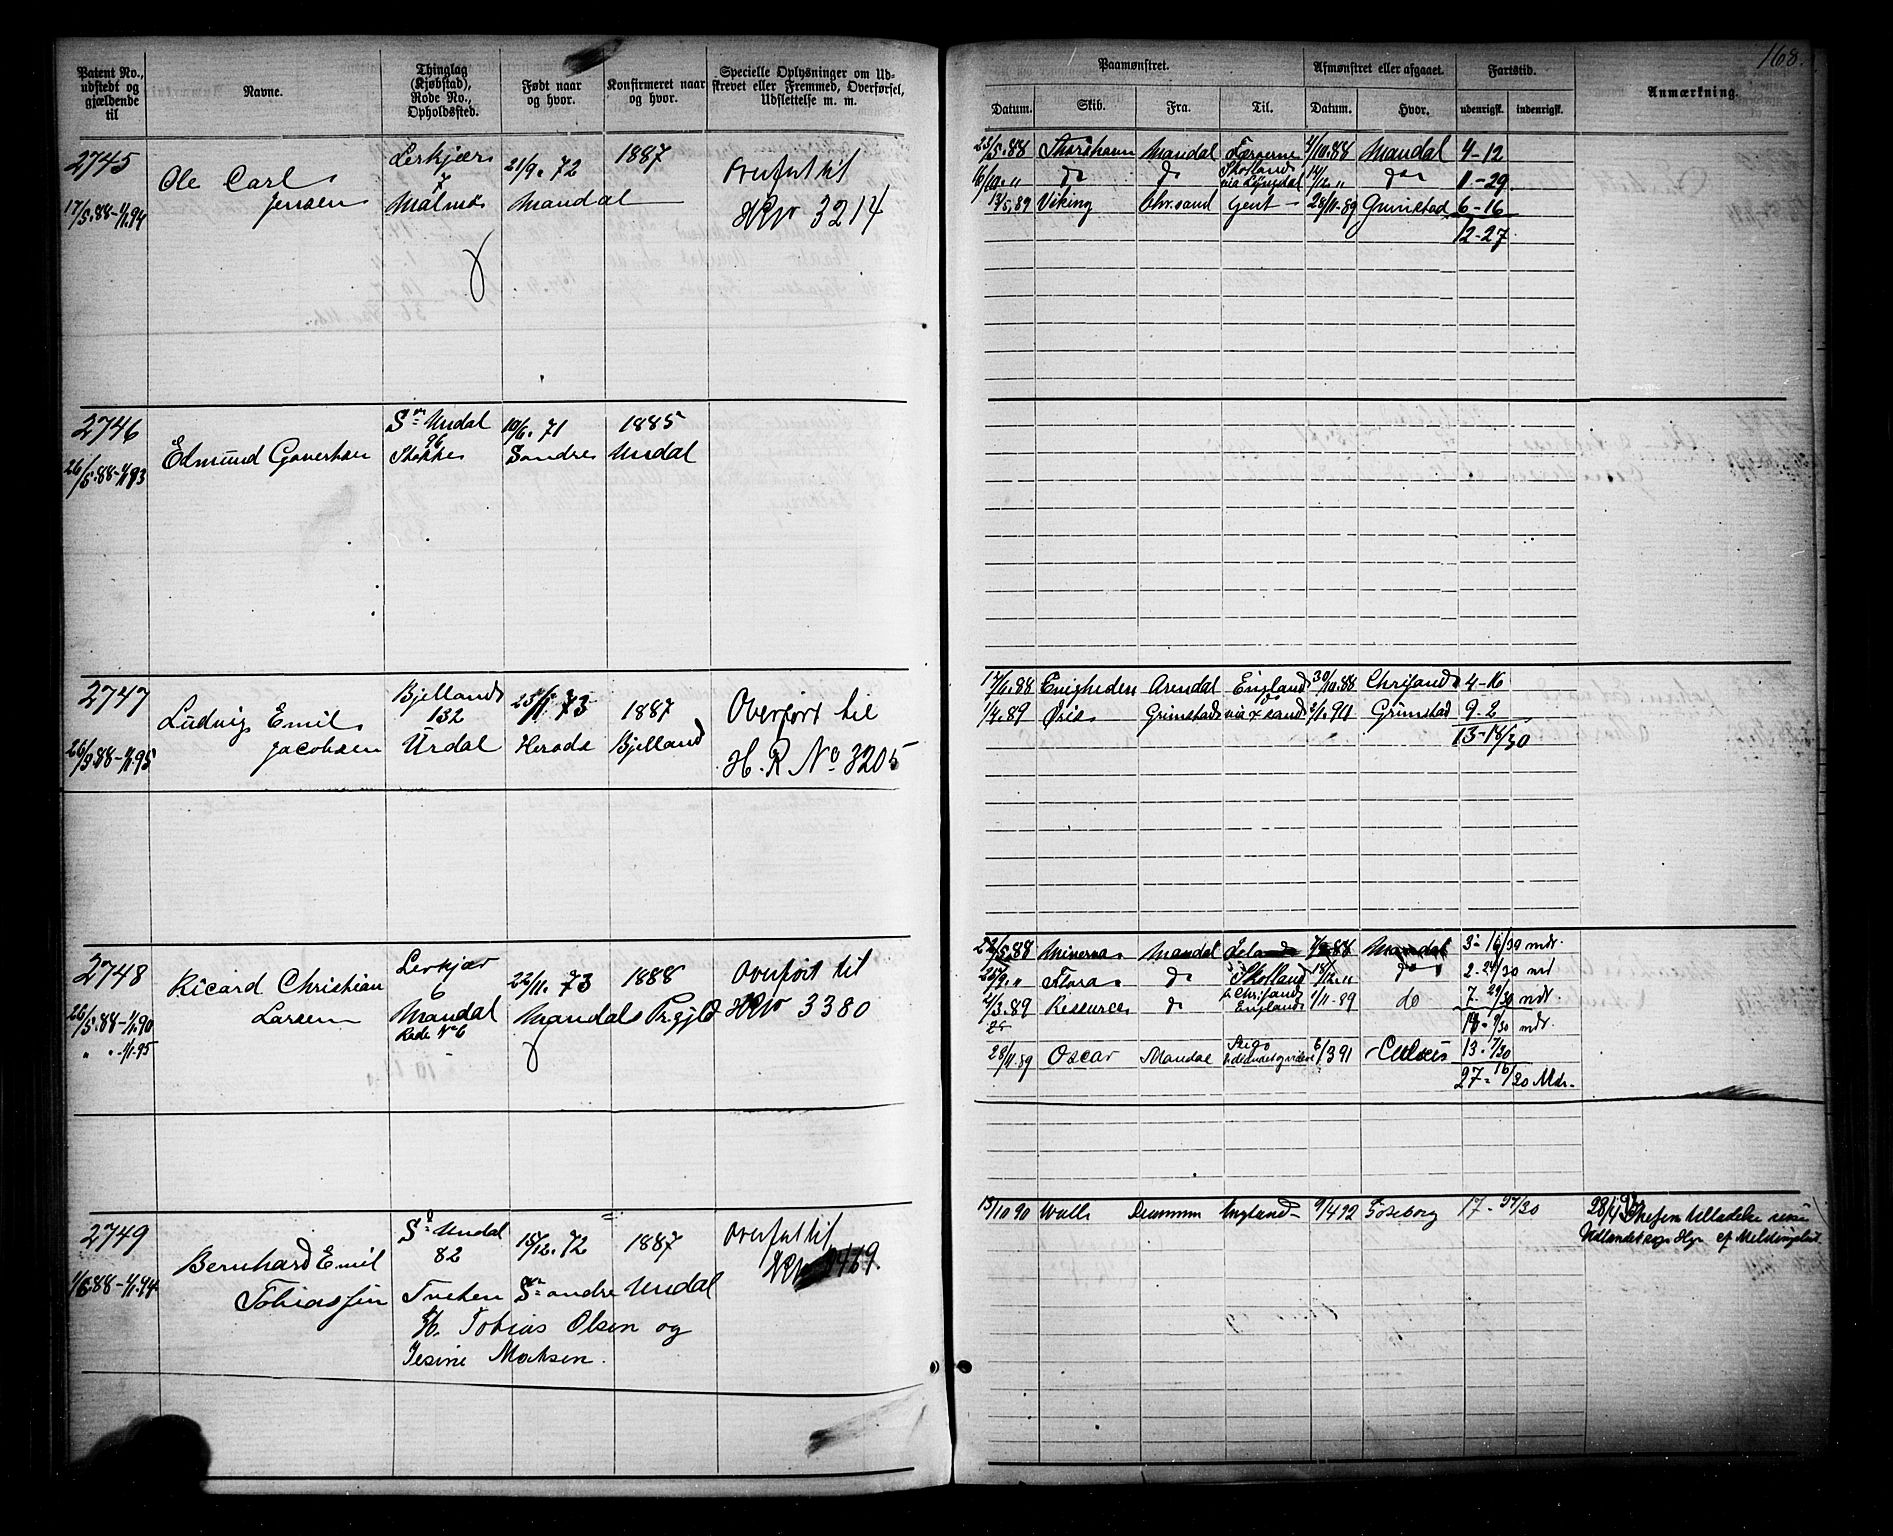 168.
Patent No., udstedt og gjældende til
Navne.
Thinglag (Kjøbstad), Rode No., Opholdssted.
Født naar og hvor.
Konfirmeret naar og hvor.
Specielle Oplysninger om Udskrevet eller Fremmed, Overførsel, Udslettelse m. m.
Paamønstret.
Afmønstret eller afgaaet.
Fartstid.
Anmærkning.
Datum. Skib. Fra. Til. Datum. Hvor. udenrigsk. indenrigsk.
2745
17/5.88-1/1.94
Ole Carl Jensen
Lerkjær
7
Malmø
21/9. 72
Mandal
1887
Overført til
HR No 3214
23/5.88 Thorshavn Mandal Færøerne 4/10.88 Mandal 4-12
6/10 " do do Skotland via Lyngdal 14/12 " do 1-29
13/5.89 Viking Chr.sand Gent 28/11.89 Grimstad 6-16
12-27
2746
26/5.88-1/1.93
Edmund Govertsen
Sr Undal
96
Stokke
10/6. 71
Søndre Undal
1885
2747
26/5.88-1/1.95
Ludvig Emil Jacobsen
Bjelland
132
Urdal
25/11.73
Herods
1887
Bjelland
Overført til
H. R No. 3205
14/6.88 Enigheden Arendal England 30/10.88 Chrisand 4-16
1/4.89 Øris Grimstad via Xsand 3/1.90 Grimstad 9-2
13-18/30
2748
26/5.88-1/1.90
" " 1/1.95
Ricard Christian Larsen
Lerkjær
6
Mandal
Rode No 6
22/11. 73
Mandals Prgjld
1888
Overført til
HR No 3380
22/5.88 Minerva Mandal Mandal 3- 16/30 mdr.
25/9. " Flora do Skotland 18/12. " do 2-24/30 md
2/3.89 Ressource do England 1/11-89 do 7-29/30 mdr
14-9/30 mdr.
28/11.89 Oscar Mandal 6/3 91 13-7/30
27-16/30 Mdr.
2749
1/6.88-1/1.94
Bernhard Emil Tobiassen
Sø Undal
82
Tveten
15/12. 72
Sr andre Undal
1887
F. Tobias Olsen og
Jesine Matsen.
Overført til
HR No 469
15/10 90 Valle Drammen England 9/4 92 Gøteborg 17-24/30
28/4 92